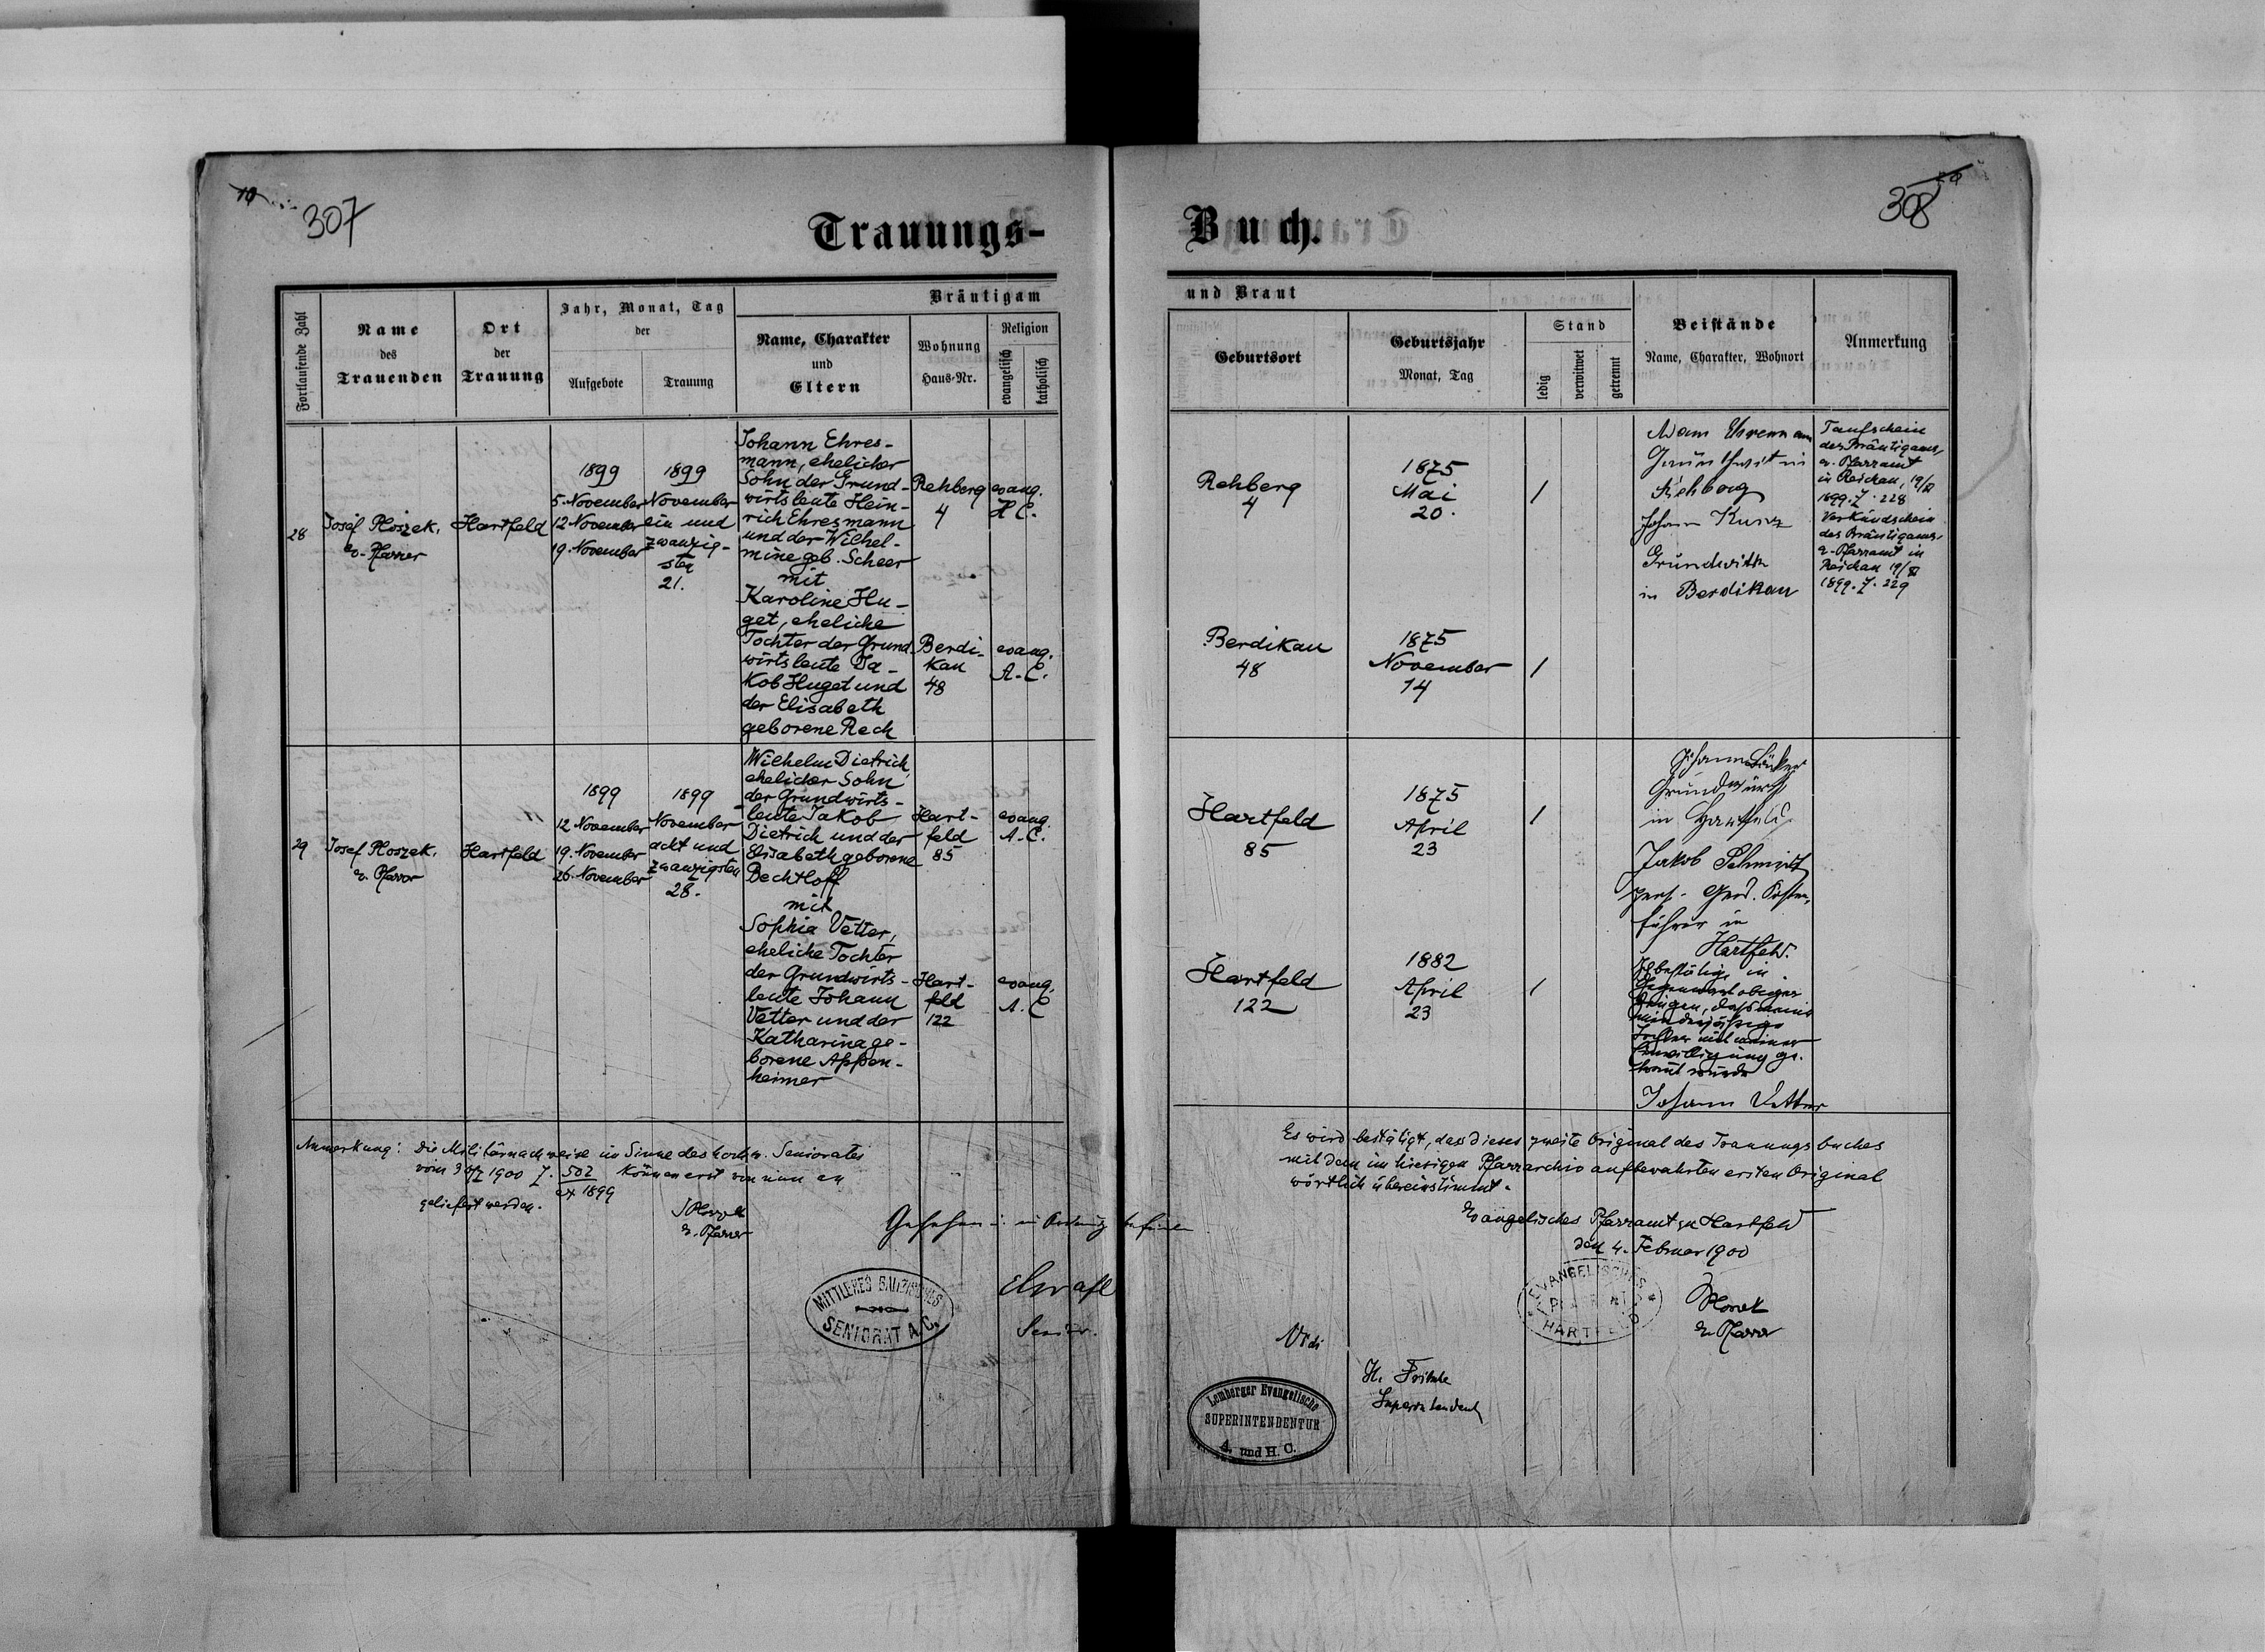 307
308
Trauungs-
Buch.
Fortlaufende Zahl
Name
des
Trauenden
Ort
der
Trauung
Jahr, Monat, Tag
der
Aufgebote
Trauung
Bräutigam
Name, Charakter
und
Eltern
Wohnung
Haus-Nr.
Religion
evangelisch
katholisch
und Braut
Geburtsort
Geburtsjahr
Monat, Tag
Stand
ledig
verwitwet
getrennt
Beistände
Name, Charakter, Wohnort
Anmerkung
28
Josef Ploszek,
ev. Pfarrer
Hartfeld
1899
5. November
12 November
19. November
1899
November
ein und
zwanzig-
sten
21.
Johann Ehres-
mann, ehelicher
Sohn der Grund-
wirtsleute Hein-
rich Ehresmann
und der Wilhel-
mine geb. Scheer
mit
Karoline Hu-
get, eheliche
Tochter der Grund-
wirtsleute Ja-
kob Huget und
der Elisabeth
geborene Rech
Rehberg
4
evang.
H. C.
Berdi-
kau
48
evang.
A. C.
Rehberg
4
1875
Mai
20.
/
Berdikau
48
1875
November
14
/
Adam
in
Rehberg
Johann Kunz
Grundwirth
in Berdikau
Taufschein
des Bräutigams,
ev. Pfarramt
in Reichau, 19/XI
1899. Z. 228
Verkündschein
des Bräutigams,
ev. Pfarramt in
Reichau 19/XI
1899. Z. 229
29
Josef Ploszek,
ev. Pfarrer
Hartfeld
1899
12 November
19. November
26. November
1899
November
acht und
zwanzigsten
28.
Wilhelm Dietrich
ehelicher Sohn
der Grundwirts-
leute Jakob
Dietrich und der
Elisabeth geborene
Bechtloff
mit
Sophia Vetter,
eheliche Tochter
der Grundwirts-
leute Johann
Vetter und der
Katharina ge-
borene Appen-
heimer
Hart-
feld
85
evang.
A. C.
Hart-
feld
122
evang.
A. C
Hartfeld
85
1875
April
23
/
Hartfeld
122
1882
April
23
/
Johann
in Hartfeld
Jakob Schmidt
führer in
Hartfeld.
Ich bestätige in
Gegenwart obiger
Zeugen, dass meine
minderjährige
Tochter mit meiner
Einwilligung ge-
traut wurde
Johann Vetter
Anmerkung: Die Militärnachweise im Sinne des hochw. Seniorates
vom 1900 Z. 502 können erst von nun an
ex 1899
geliefert werden.
JPloszek
ev. Pfarrer
Gesehen u. in Ordnung befunden
Senior.
MITTLERES GALIZISCHES
SENIORAT A. C.
Es wird bestätigt, dass dieses zweite Original des Trauungsbuches
mit dem im hiesigen Pfarrarchiv aufbewahrten ersten Original
wörtlich übereinstimmt.
Evangelisches Pfarramt zu Hartfeld
den 4. Februar 1900
EVANGELISCHES
PFARRAMT
HARTFELD
Ploszek
ev. Pfarrer
Vidi
H. Fritsche
Superintendent
Lemberger Evangelische
SUPERINTENDENTUR
A. und H. C.